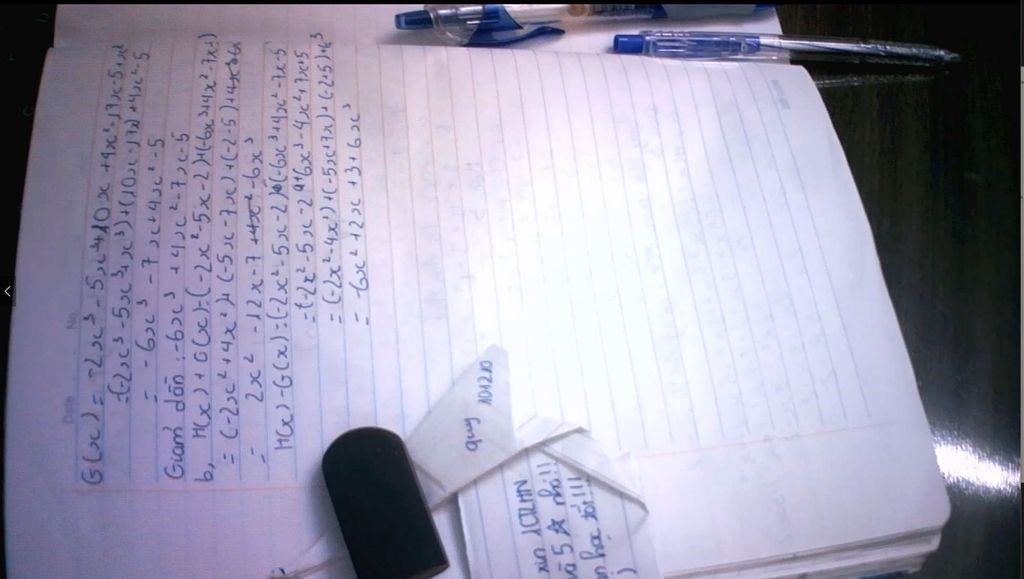 G(x) = -2x³ - 5x³ + 10x + 4x² - 17x - 5 + x³
=(-2x³ - 5x³ + x³) + (10x - 17x) + 4x² - 5
= -6x³ - 7x + 4x² - 5
Giảm dần : -6x³ + 4x² - 7x - 5
b, H(x) + G(x) = (-2x² - 5x - 2) + (-6x³ + 4x² - 7x - 5)
= (-2x² + 4x²) + (-5x - 7x) + (-2 - 5)
= 2x² - 12x - 7 - 6x³
H(x) - G(x) = (-2x² - 5x - 2) - (-6x³ + 4x² - 7x - 5)
= (-2x² - 5x - 2 + 6x³ - 4x² + 7x + 5
= (-2x² - 4x²) + (-5x + 7x) + (-2 + 5) + 6x³
= -6x² + 2x + 3 + 6x³
quy 101210
xin 1CTLHN
và 5 nhá!!
học tốt!!!
Date No